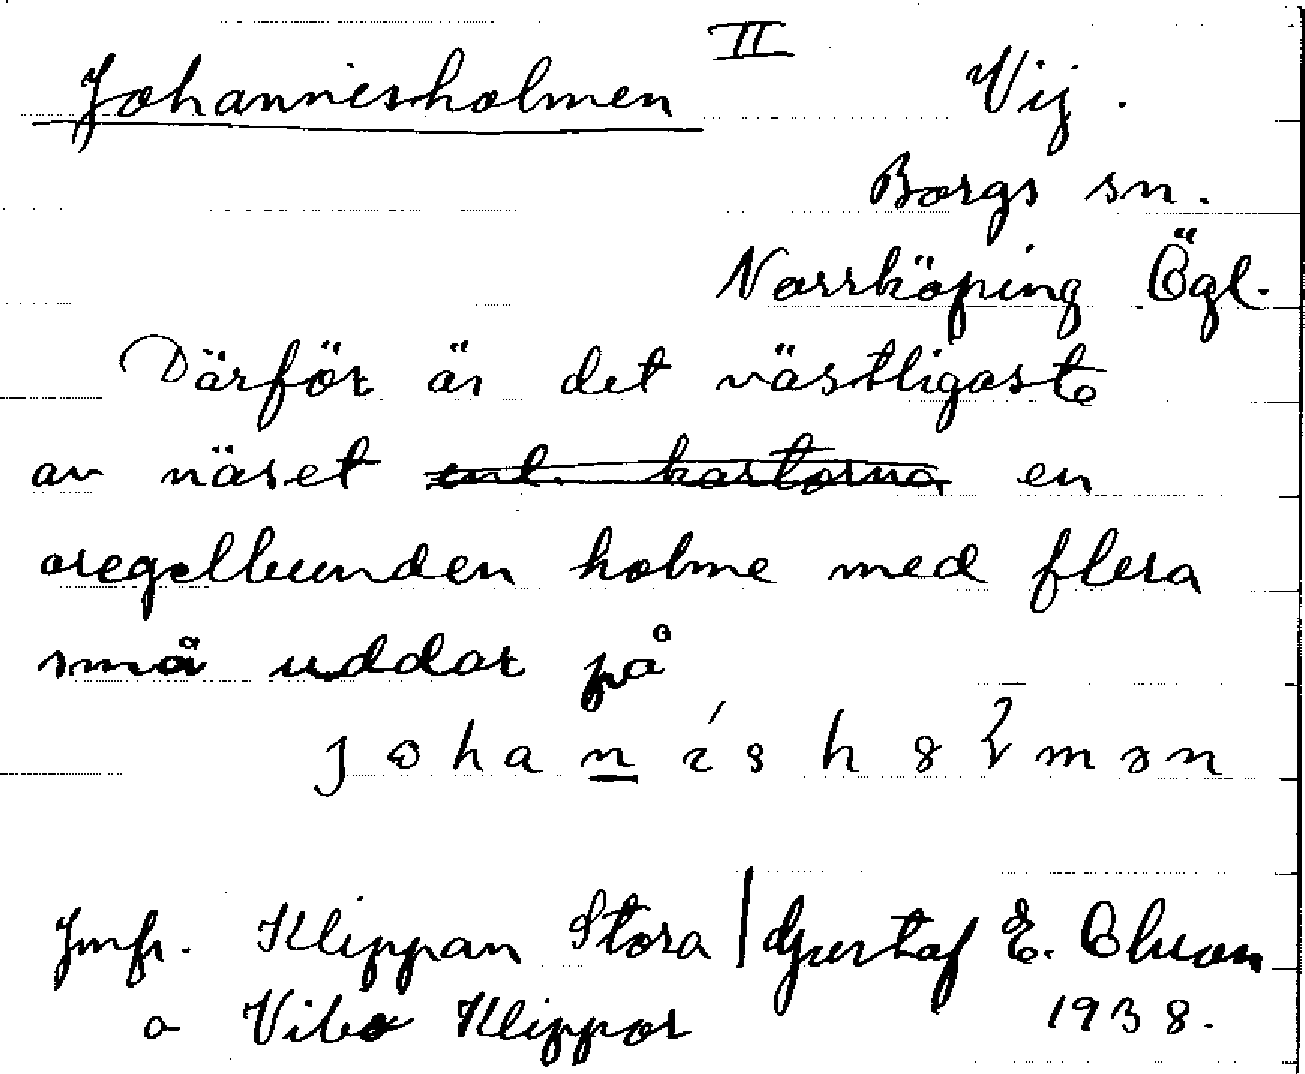 II
Johannisholmen Vij.
Borgs sn.
Norrköping Ögl.
Därför är det västligaste
av näset enl. kartorna en
oregelbunden holme med flera
små uddar på
Jmfr. Klippan Stora | Gustaf E.
o Vibo Klippor 1938.